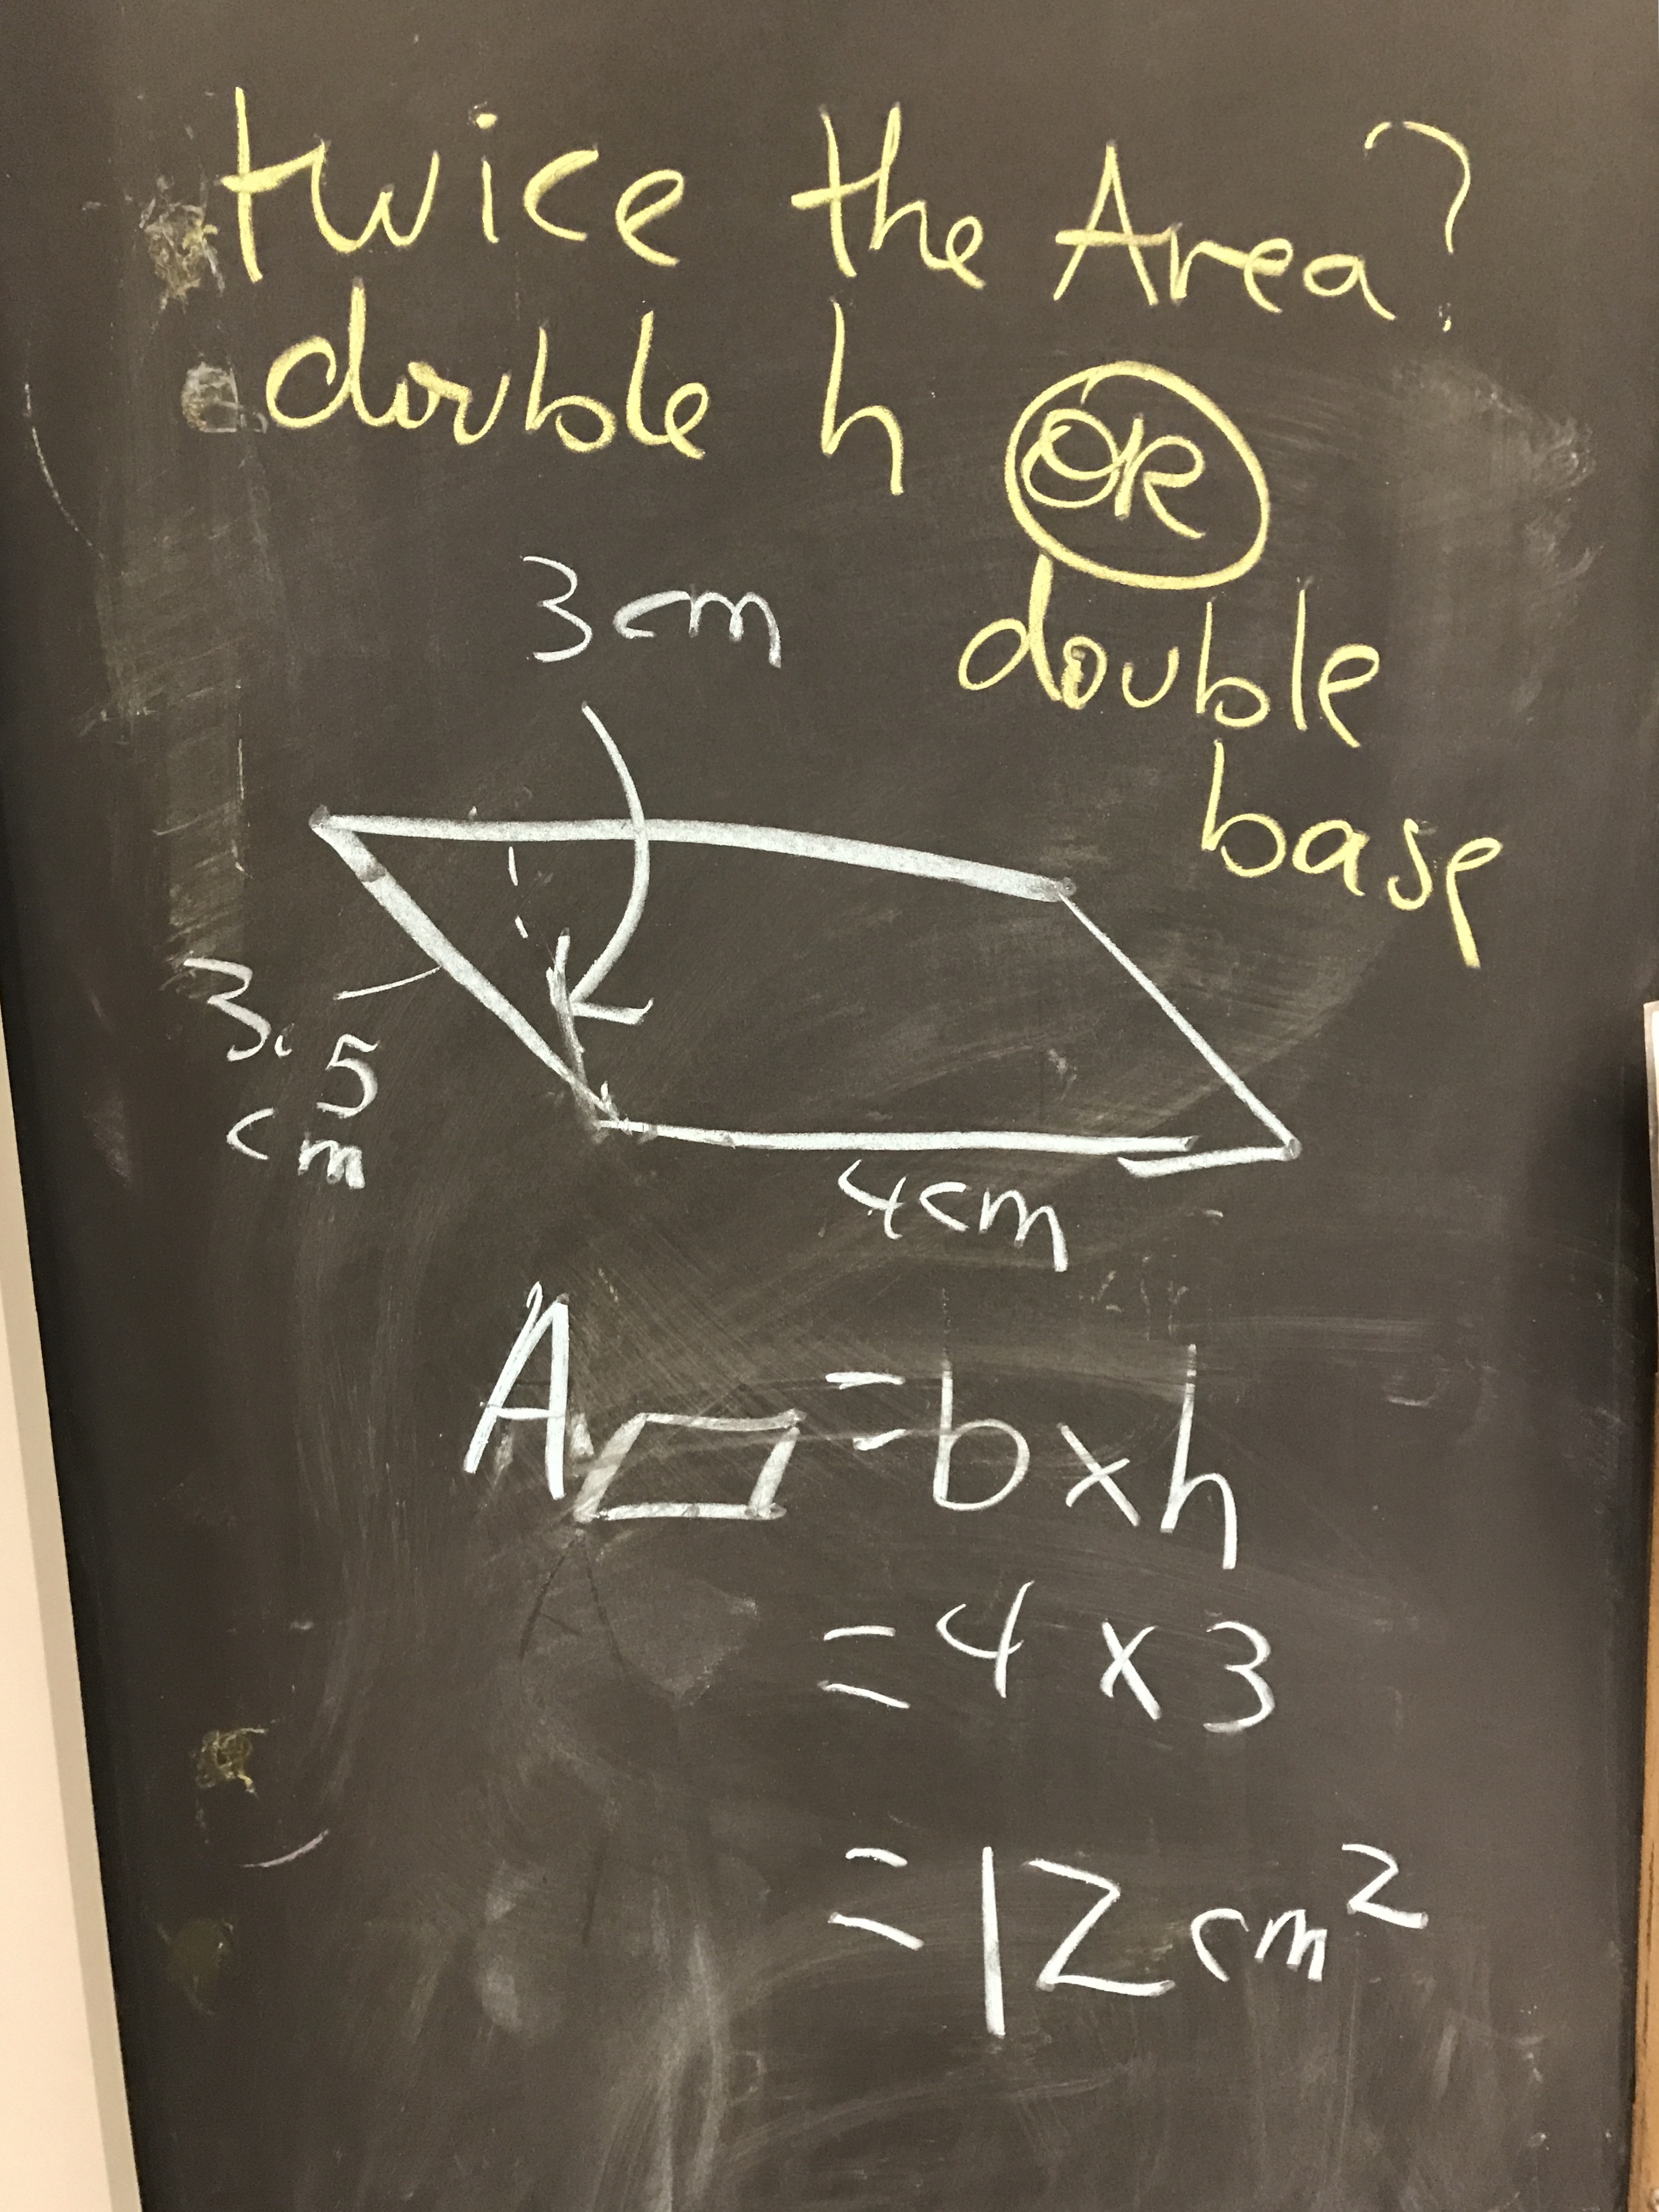 twice the Area?
double h OR
double
base
3cm
3.5
cm
4cm
A▱ = b x h
= 4 x 3
= 12 cm²